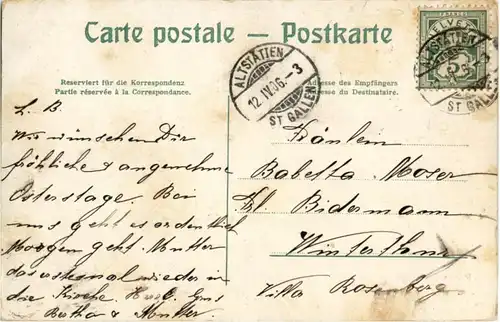 Carte postale – Postkarte
Reserviert für die Korrespondenz
Partie réservée à la Correspondance.
Adresse des Empfängers
Adresse du Destinataire.
ALTSTÄTTEN
12.IV.06.-3
ST GALLEN
HELVETIA
FRANCO
5
ALTSTÄTTEN
-3
ST GALLEN
L. B.
Wir wünschen Dir
fröhliche & angenehme
Osterstage. Bei
uns geht es ordentlich
Morgen geht Mutter
das erstemal wieder in
die Kirche. Herzl. Grus
Bertha & Mutter.
Fräulein
Babetta Moser
bei Bidermann
Winterthur
Villa Rosenberg